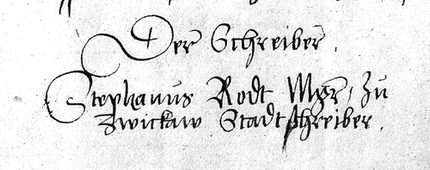 Der Schreiber.
Stephanus Rodt Mgr, zu
Zwickaw Stadtschreiber.